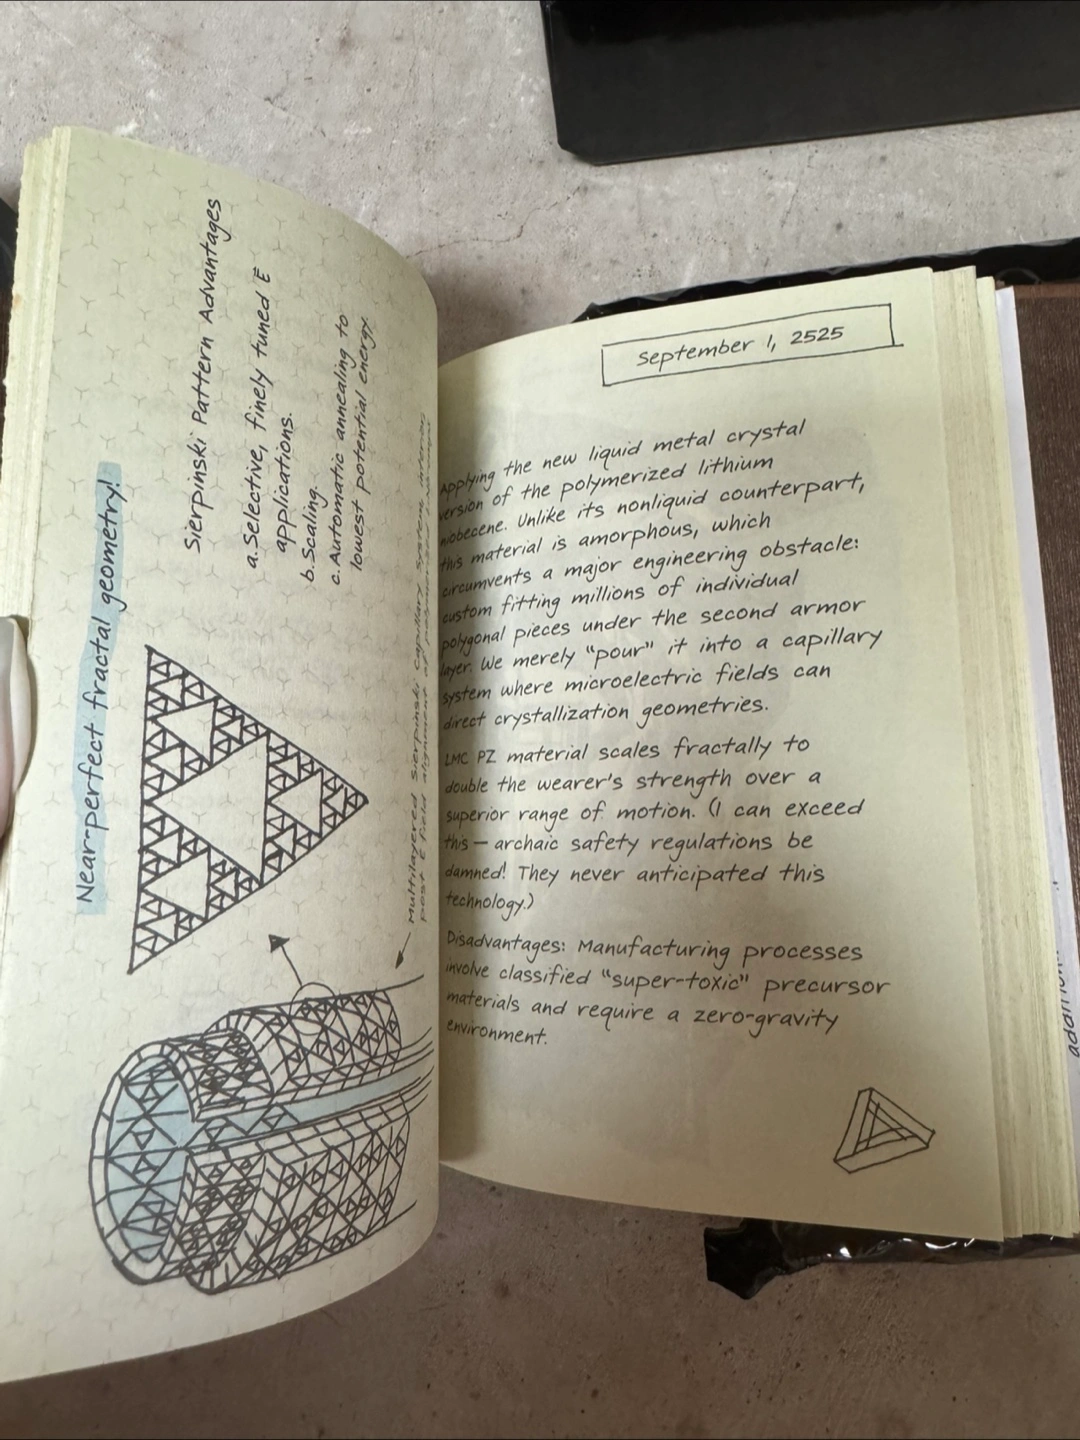 Near-perfect fractal geometry!
Sierpinski Pattern Advantages
a. Selective, finely tuned E
applications.
b. Scaling.
c. Automatic annealing to
lowest potential energy.
Multilayered Sierpinski Capillary System
post E field alignment of
September 1, 2525
Applying the new liquid metal crystal
version of the polymerized lithium
niobecene. Unlike its nonliquid counterpart,
this material is amorphous, which
circumvents a major engineering obstacle:
custom fitting millions of individual
polygonal pieces under the second armor
layer. We merely "pour" it into a capillary
system where microelectric fields can
direct crystallization geometries.
LMC PZ material scales fractally to
double the wearer's strength over a
superior range of motion. (I can exceed
this — archaic safety regulations be
damned! They never anticipated this
technology.)
Disadvantages: Manufacturing processes
involve classified "super-toxic" precursor
materials and require a zero-gravity
environment.